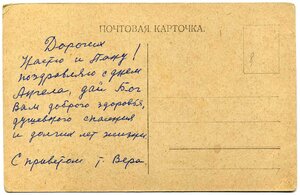 ПОЧТОВАЯ КАРТОЧКА.
Дорогих
Настю и Пашу!
поздравляю с днем
Ангела, дай Бог
Вам доброго здоровья,
душевного спасения
и долгих лет жизни
С приветом т. Вера